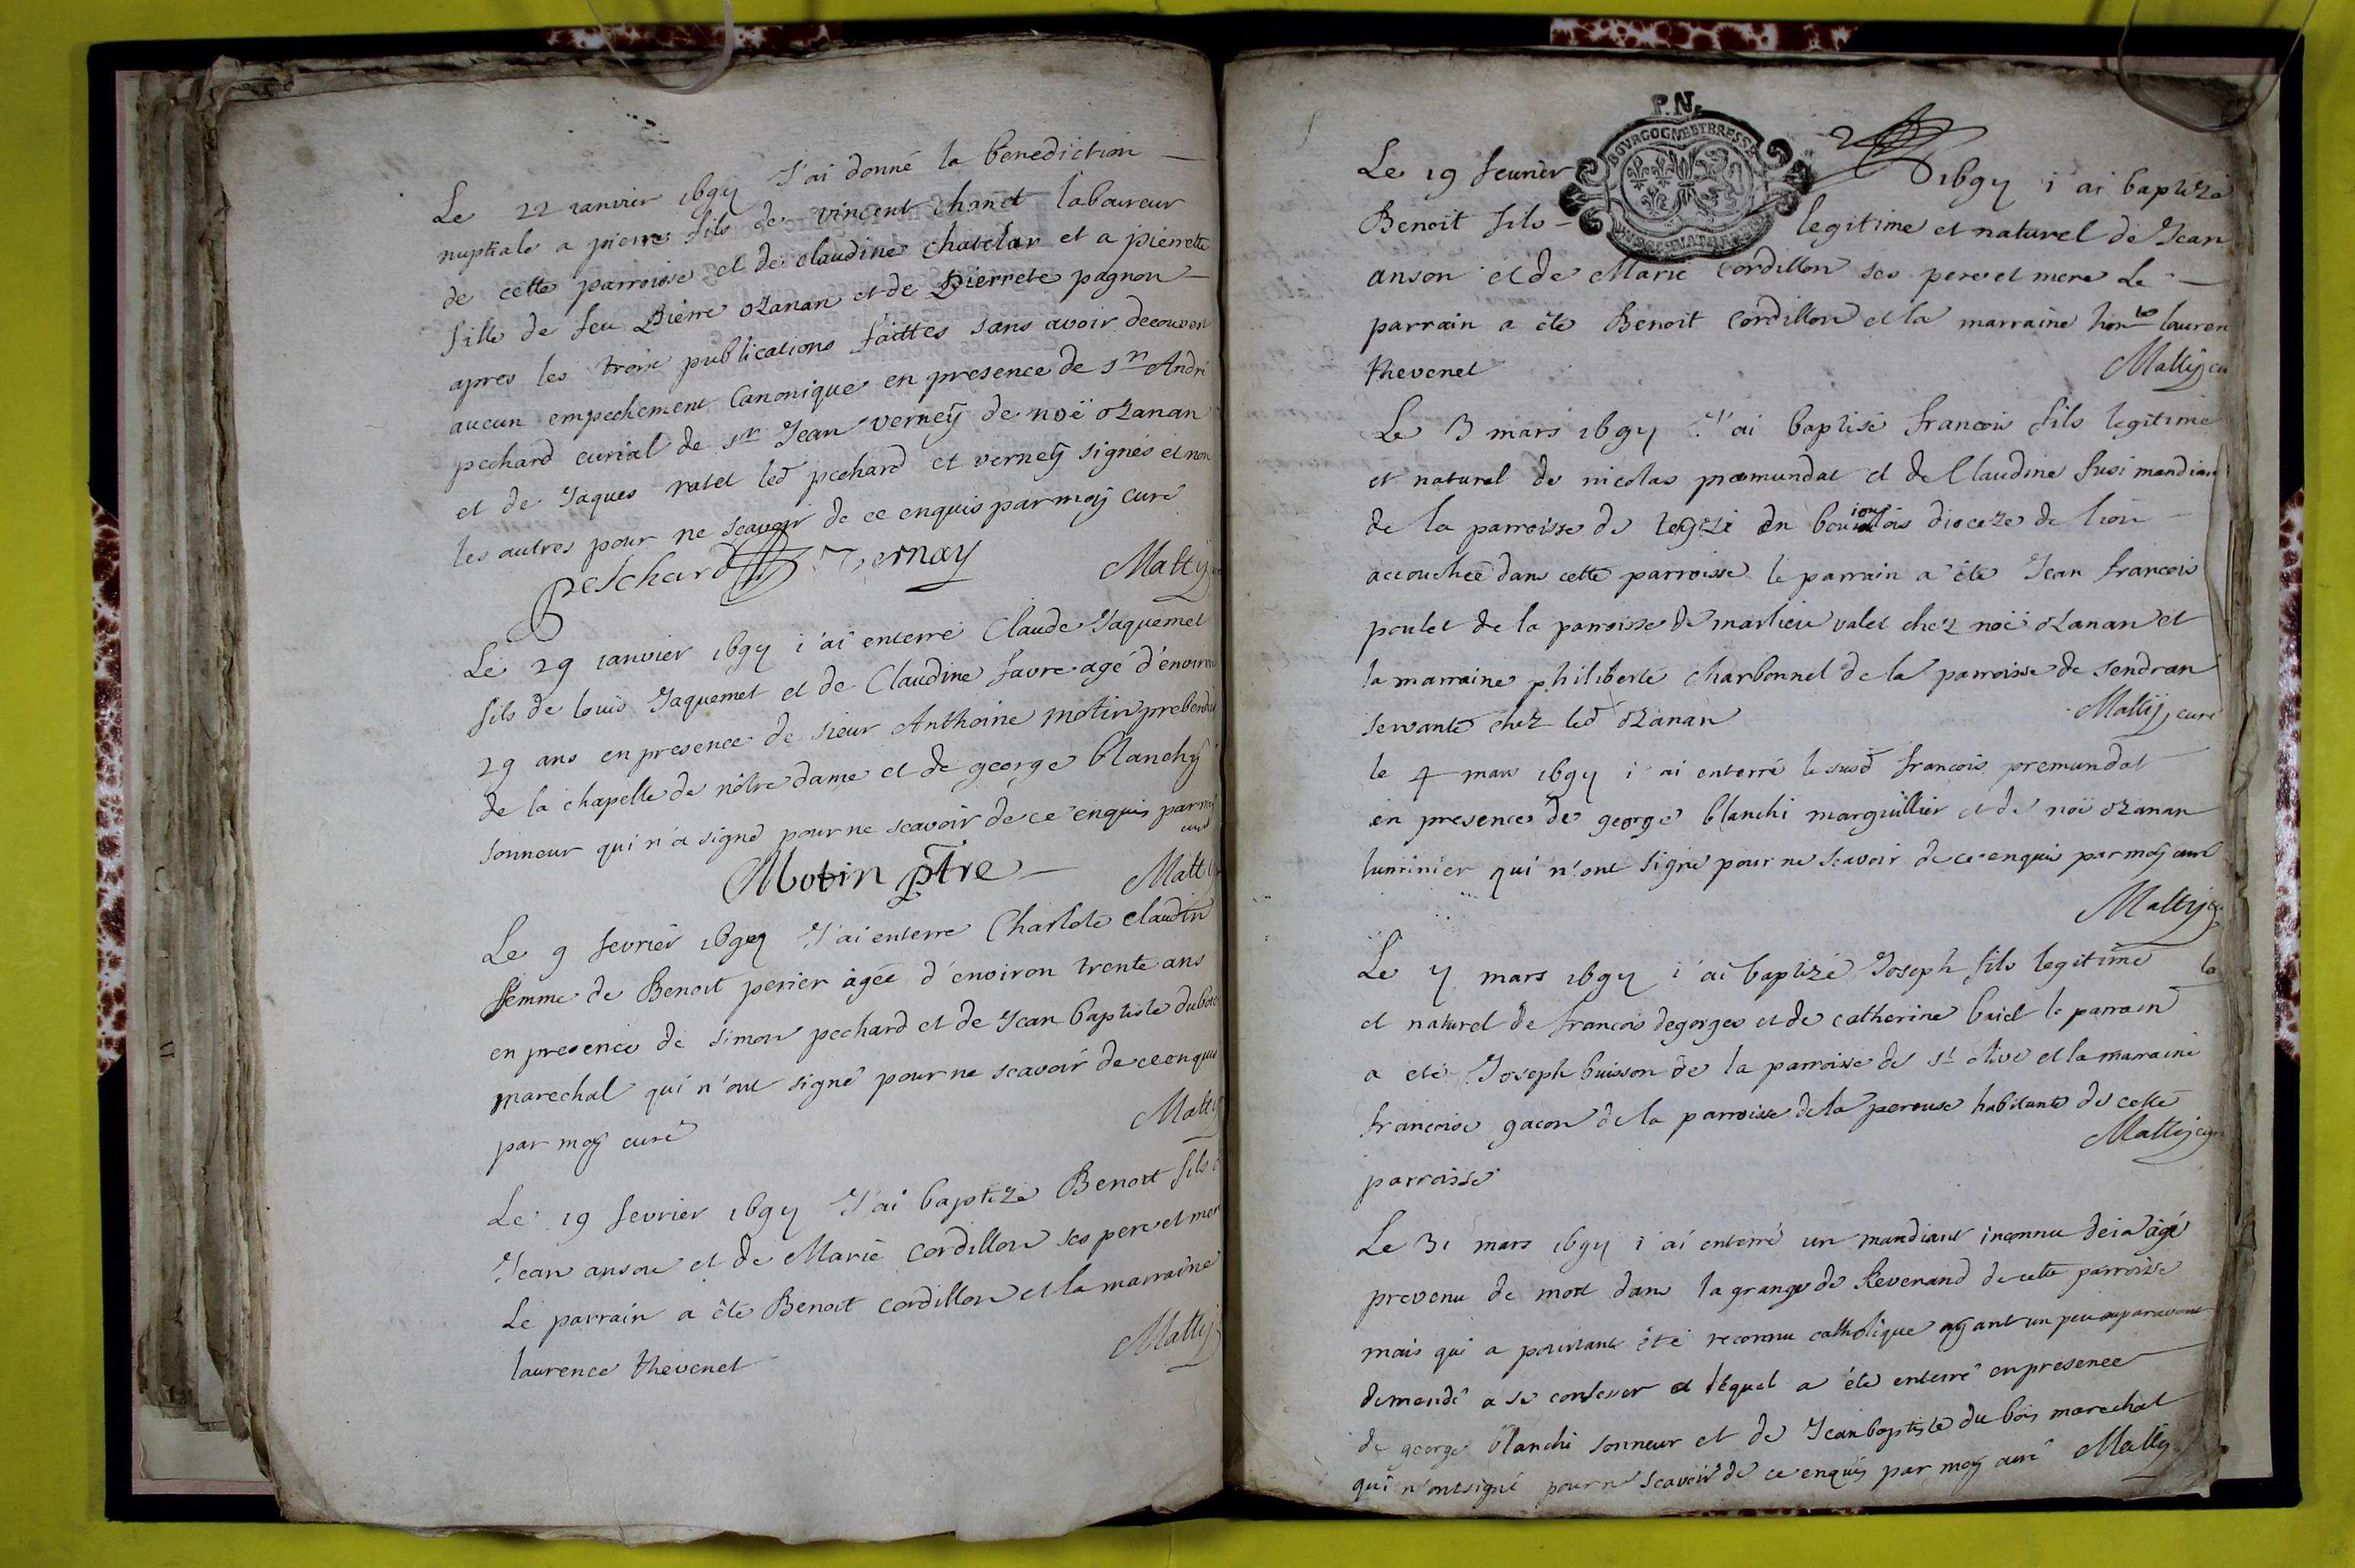 Le 22 ianvier 1697 J'ai donné la benediction
nuptiale a pierre fils de vincent chanet laboureur
de cette parroisse et de claudine chatelar et a pierrette
fille de feu Pierre ozanan et de Pierrete pagnon
apres les trois publications faittes sans avoir decouvert
aucun empechement Canonique en presence de sr André
pechard curial de sr Jean verneÿ de noë ozanan
et de Jaques ratel led pechard et verneÿ signés et non
les autres pour ne scavoir de ce enquis par moÿ curé
peschard Vernay Mattÿ
Le 29 ianvier 1697 i'ai enterré Claude Jaquemet
fils de louis Jaquemet et de Claudine favre agé d'environ
29 ans en presence de sieur Anthoine motin prebend
de la chapelle de nôtre dame et de george blanchÿ
sonneur qui n'a signé pour ne scavoir de ce enquis par moÿ
curé
Motin ptre Mattÿ
Le 9 fevrier 1697 J'ai enterre Charlote claudin
femme de Benoit perier âgée d'environ trente ans
en presence de simon pechard et de Jean baptiste dubois
marechal qui n'ont signé pour ne scavoir de ce enquis
par moÿ curé Mattÿ
Le 19 fevrier 1697 J'ai baptizé Benoit fils d
Jean anson et de Marie Cordillon ses pere et mere
Le parrain a êté Benoit Cordillon et la marraine
laurence thevenet Mattÿ
P.N.
BOURGOGNE ET BRESSE
Le 19 feurier 1697 i'ai baptizé
Benoit fils legitime et naturel de Jean
anson et de Marie Cordillon ses pere et mere Le
parrain a êté Benoit Cordillon et la marraine honte lauren
thevenet Mattÿ cu
Le 3 mars 1697 J'ai baptisé francois fils legitime
et naturel de nicolas premundat et de Claudine fusi mandian
de la parroisse de en dioceze de lion
accouchée dans cette parroisse le parrain a êté Jean francois
poulet de la parroisse de marlieu valet chez noë ozanan et
la marraine philiberte charbonnel de la parroisse de sendran
servante chez led ozanan Mattÿ curé
le 4 mars 1697 i'ai enterré le susd francois premundat
en presence de george blanchi marguillier et de noë ozanan
luminier qui n'ont signé pour ne scavoir de ce enquis par moÿ curé
Mattÿ
Le 7 mars 1697 i'ai baptizé Joseph fils legitime
et naturel de francois degorges et de catherine buiet le parrain
a eté Joseph buisson de la parroisse de st olive et la marraine
francoise gacon de la parroisse de la perouse habitante de cette
parroisse Mattÿ curé
Le 31 mars 1697 i'ai enterré un mandiant inconnu deia âgé
prevenu de mort dans la grange de Reverand de cette parroisse
mais qui a pourtant été reconnu catholique aÿant un peu auparavant
demandé a se confesser et lequel a été enterré en presence
de george blanchi sonneur et de Jean baptiste du bois marechal
qui n'ont signé pour ne scavoir de ce enquis par moÿ curé Mattÿ